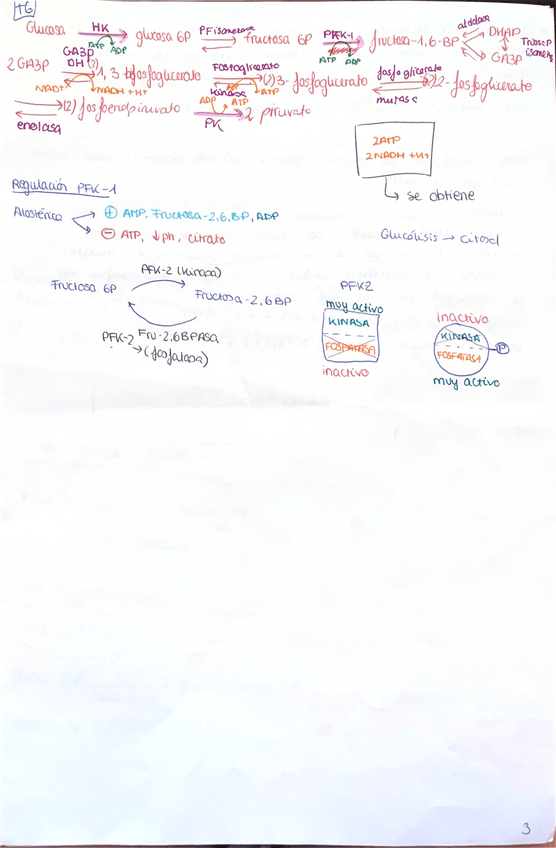 T6
Glucosa HK ATP ADP glucosa 6P PFisomerasa fructosa 6P PFK-1 ATP ADP fructosa-1,6-BP aldolasa DHAP GA3P
2 GA3P GA3P DH (2) 1,3 bifosfoglicerato NAD+ NADH+H+ Fosfoglicerato kinasa ADP ATP (2) 3-fosfoglicerato fosfoglicerato mutasa (2) 2-fosfoglicerato
enolasa (2) fosfoenolpiruvato ADP ATP PK 2 piruvato
2ATP
2NADH+H+
se obtiene
Regulación PFK-1
Alostérica + AMP, Fructosa-2,6,BP, ADP
- ATP, ↓ph, citrato
Glucólisis → citosol
PFK-2 (Kinasa)
Fructosa 6P Fructosa-2,6BP
PFK-2 Fru-2,6BPAsa
→ (fosfatasa)
PFK2
muy activo
KINASA
FOSFATASA
inactivo
inactivo
KINASA
FOSFATASA P
muy activo
3